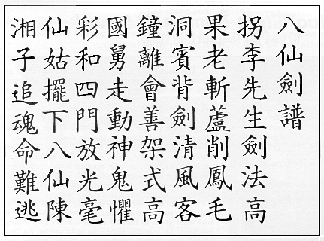 八仙劍譜
拐李先生劍法高
果老斬蘆削鳳毛
洞賓背劍清風客
鐘離會善架式高
國舅走動神鬼懼
彩和四門放光毫
仙姑擺下八仙陳
湘子追魂命難逃